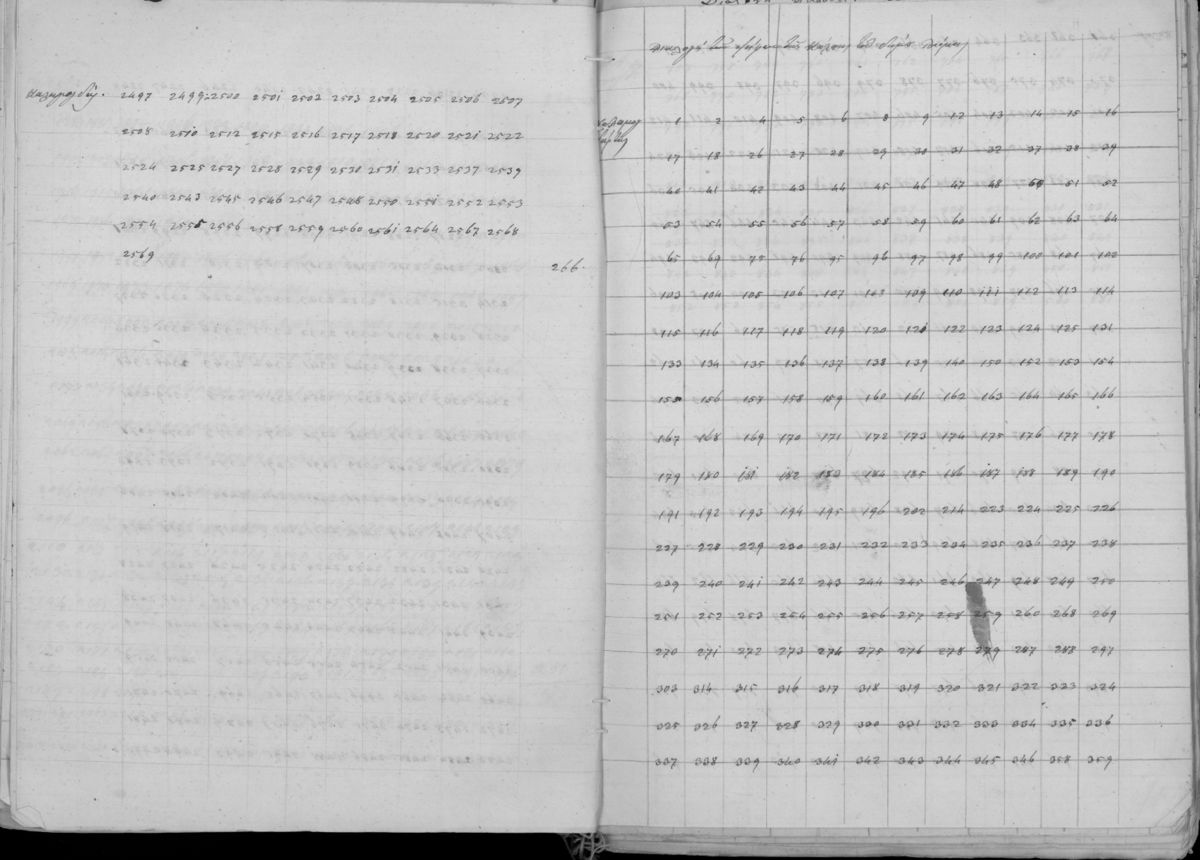 2497 2499 2500 2501 2502 2503 2504 2505 2506 2507
2508 2510 2512 2515 2516 2517 2518 2520 2521 2522
2524 2525 2527 2528 2529 2530 2531 2533 2537 2539
2540 2543 2545 2546 2547 2548 2550 2551 2552 2553
2554 2555 2556 2558 2559 2560 2561 2564 2567 2568
2569
266.
1 2 4 5 6 8 9 12 13 14 15 16
17 18 26 27 28 29 30 31 32 37 38 39
40 41 42 43 44 45 46 47 48 50 51 52
53 54 55 56 57 58 59 60 61 62 63 64
65 69 75 76 95 96 97 98 99 100 101 102
103 104 105 106 107 108 109 110 111 112 113 114
115 116 117 118 119 120 121 122 123 124 125 131
133 134 135 136 137 138 139 140 150 152 153 154
155 156 157 158 159 160 161 162 163 164 165 166
167 168 169 170 171 172 173 174 175 176 177 178
179 180 181 182 183 184 185 186 187 188 189 190
191 192 193 194 195 196 202 214 223 224 225 226
227 228 229 230 231 232 233 234 235 236 237 238
239 240 241 242 243 244 245 246 247 248 249 250
251 252 253 254 255 256 257 258 259 260 268 269
270 271 272 273 274 275 276 278 279 287 288 297
303 314 315 316 317 318 319 320 321 322 323 324
325 326 327 328 329 330 331 332 333 334 335 336
337 338 339 340 341 342 343 344 345 346 358 359